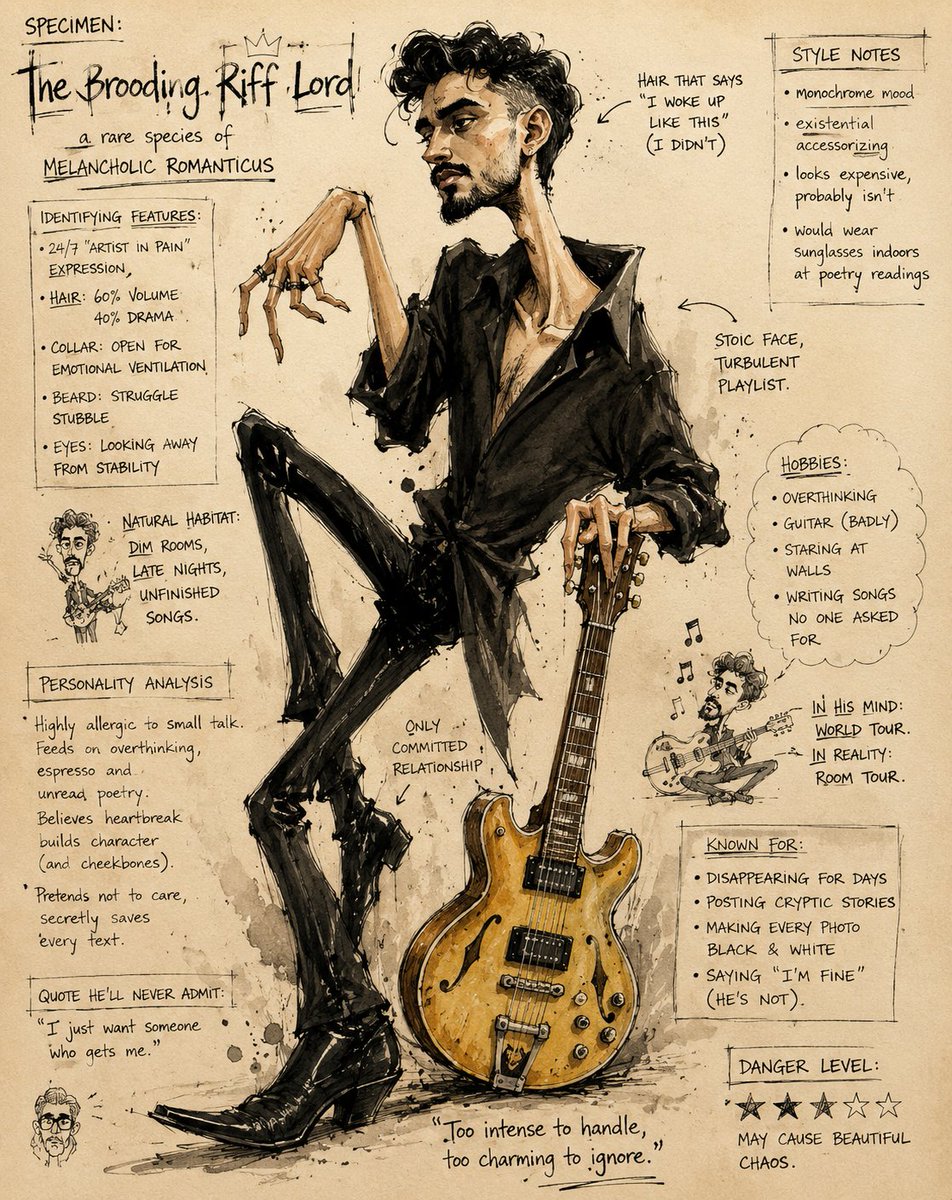 SPECIMEN:
The Brooding Riff Lord
a rare species of
MELANCHOLIC ROMANTICUS
IDENTIFYING FEATURES:
• 24/7 "ARTIST IN PAIN"
EXPRESSION,
• HAIR: 60% VOLUME
40% DRAMA
• COLLAR: OPEN FOR
EMOTIONAL VENTILATION
• BEARD: STRUGGLE
STUBBLE
• EYES: LOOKING AWAY
FROM STABILITY
NATURAL HABITAT:
DIM ROOMS,
LATE NIGHTS,
UNFINISHED
SONGS.
PERSONALITY ANALYSIS
Highly allergic to small talk.
Feeds on overthinking,
espresso and
unread poetry.
Believes heartbreak
builds character
(and cheekbones).
Pretends not to care,
secretly saves
every text.
QUOTE HE'LL NEVER ADMIT:
"I just want someone
who gets me."
HAIR THAT SAYS
"I WOKE UP
LIKE THIS"
(I DIDN'T)
STYLE NOTES
• monochrome mood
• existential
accessorizing
• looks expensive,
probably isn't
• would wear
sunglasses indoors
at poetry readings
STOIC FACE,
TURBULENT
PLAYLIST.
HOBBIES:
• OVERTHINKING
• GUITAR (BADLY)
• STARING AT
WALLS
• WRITING SONGS
NO ONE ASKED
FOR
IN HIS MIND:
WORLD TOUR.
IN REALITY:
ROOM TOUR.
ONLY
COMMITTED
RELATIONSHIP
KNOWN FOR:
• DISAPPEARING FOR DAYS
• POSTING CRYPTIC STORIES
• MAKING EVERY PHOTO
BLACK & WHITE
• SAYING "I'M FINE"
(HE'S NOT).
DANGER LEVEL:
MAY CAUSE BEAUTIFUL
CHAOS.
"Too intense to handle,
too charming to ignore."